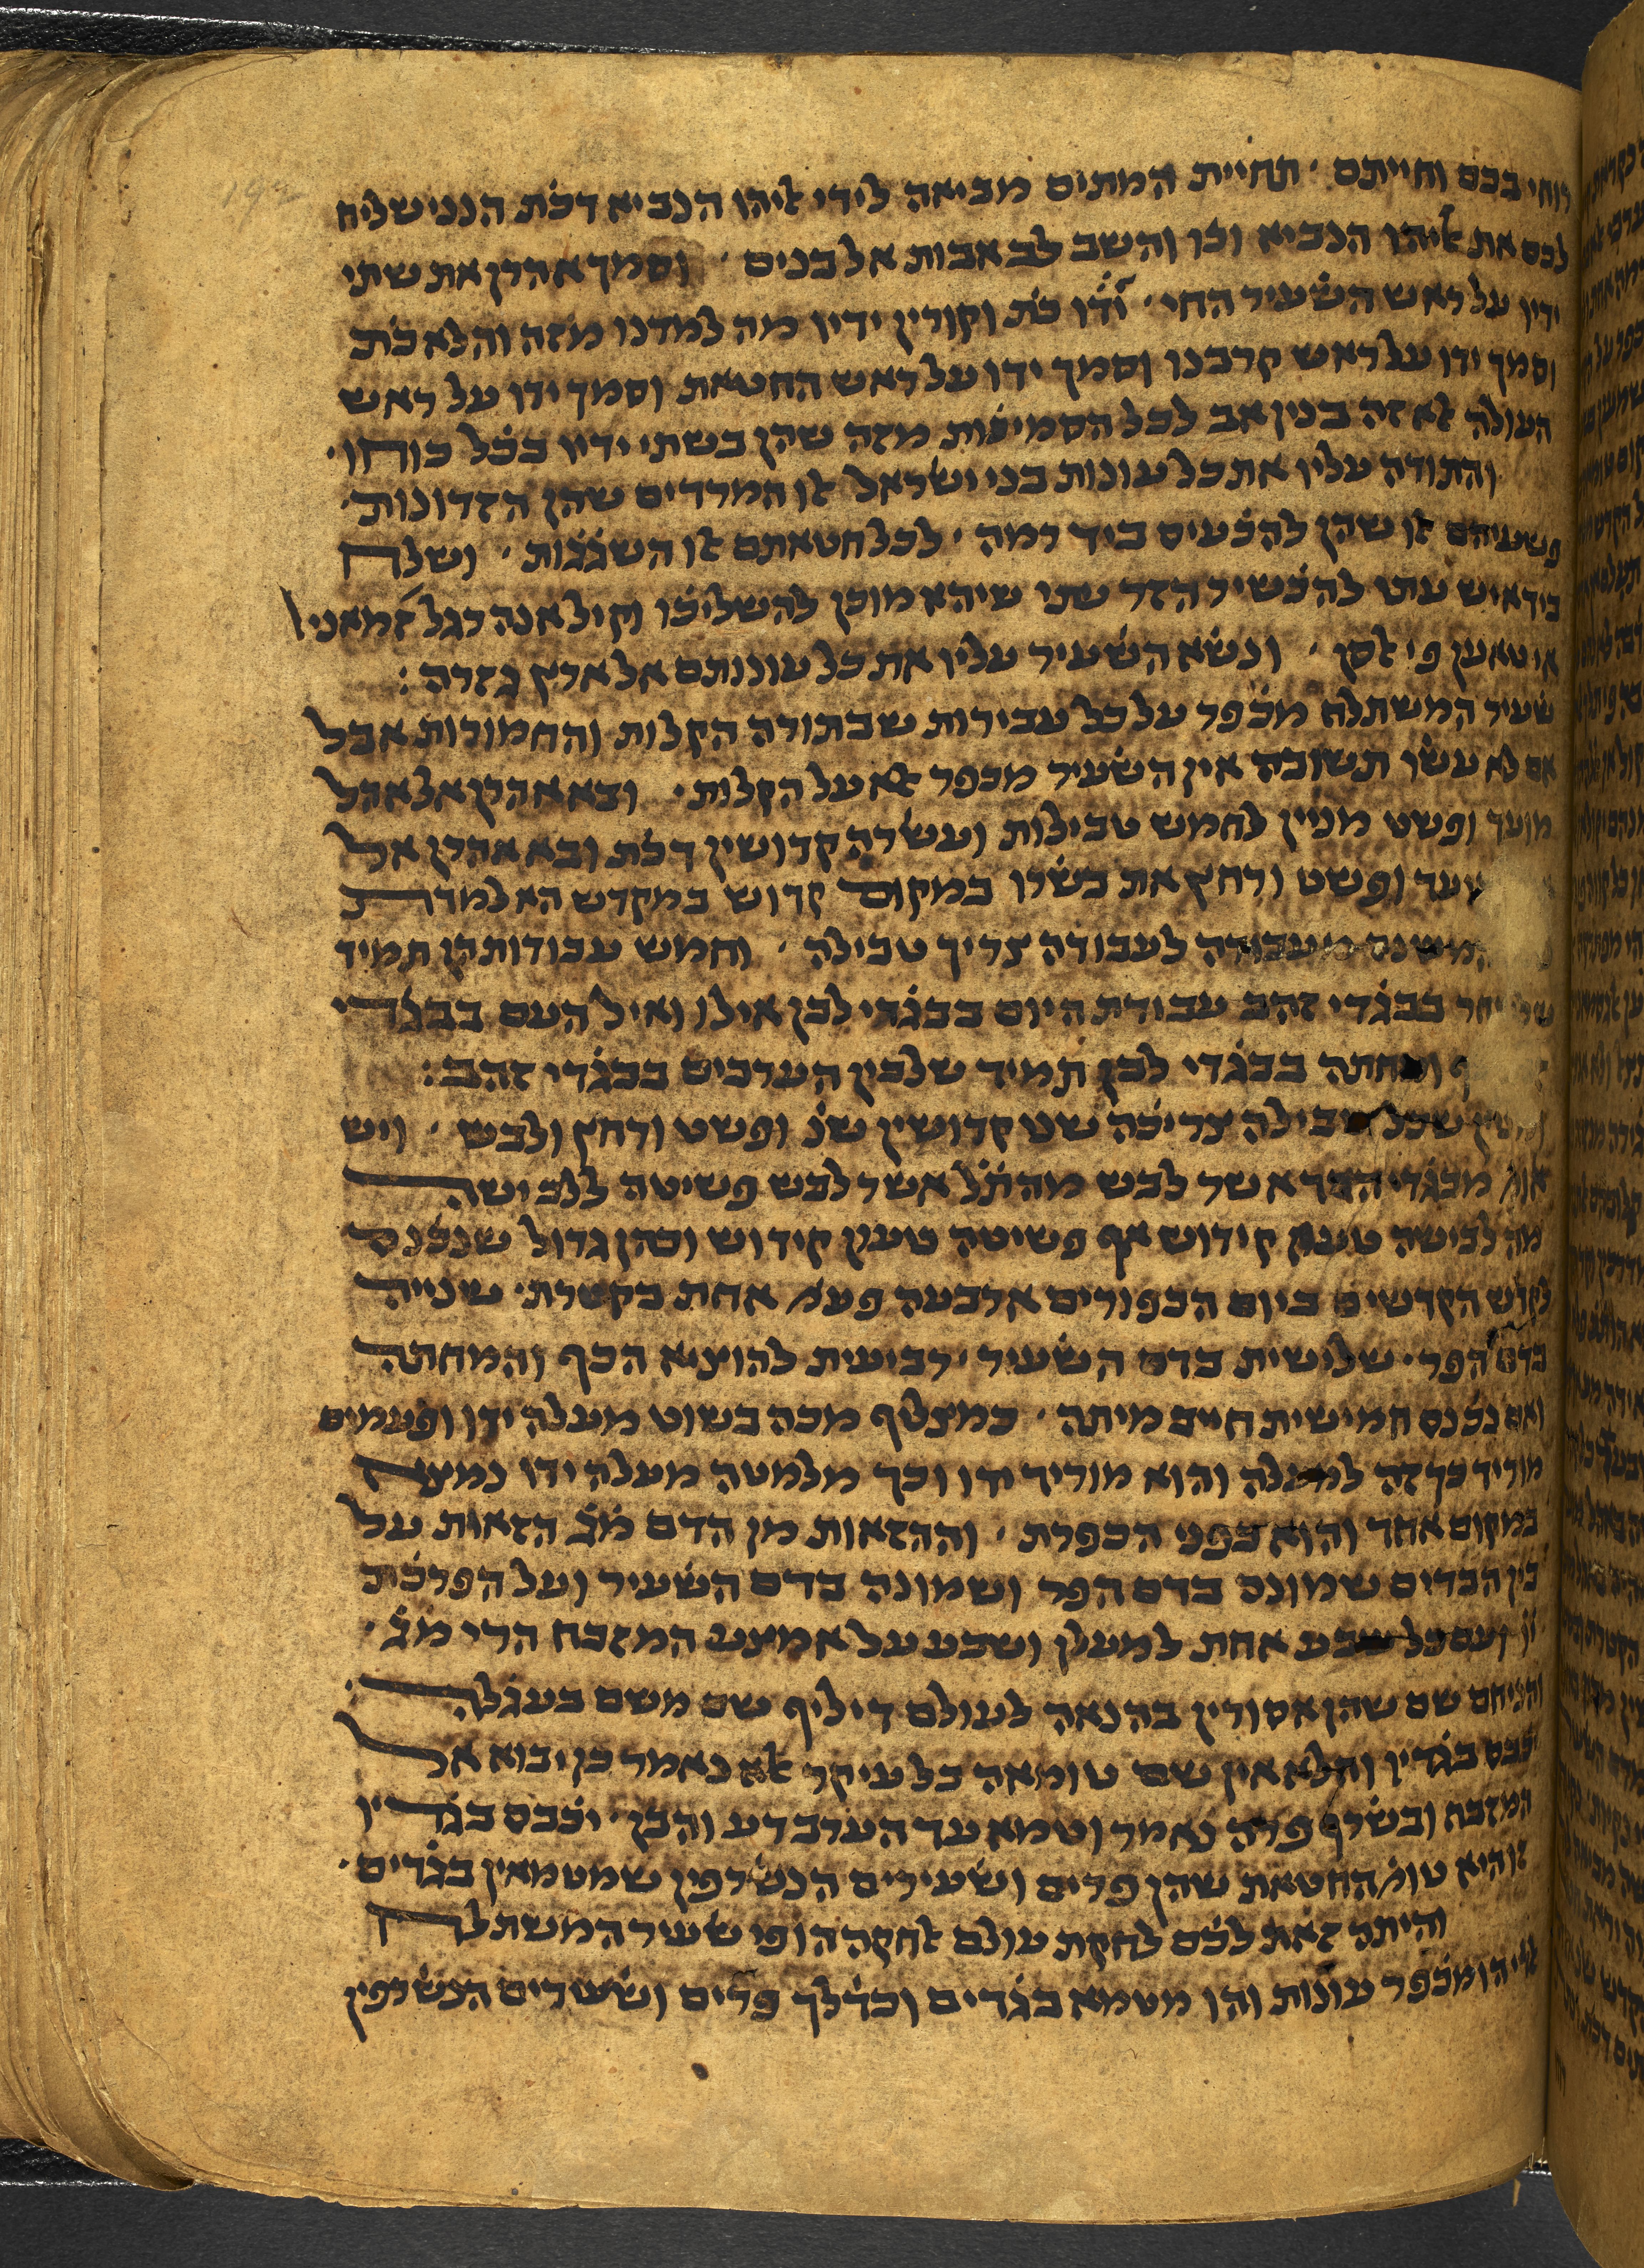 רוחי בכם וחייתם · תחיית המתים מביאה לידי אליהו הנביא דכת הנני שליח
לכם את אליהו הנביא וכו והשב לב אבות אל בנים · וסמך אהרן את שתי
ידיו על ראש השעיר החי · ידו כת וקורין ידיו מה למדנו מזה והלא כת
וסמך ידו על ראש קרבנו וסמך ידו על ראש החטאת וסמך ידו על ראש
העולה אלא זה בנין אב לכל הסמיכות מזה שהן בשתי ידיו בכל כוחו ·
והתודה עליו את כל עונות בני ישראל אלו המרדים שהן הזדונות ·
פשעיהם אלו שהן להכעיס ביד רמה · לכל חטאתם אלו השגגות · ושלח
ביד איש עתי להכשיר הזר עתי שיהא מוכן להשליכו וקיל אנה רגל זמאני
או טאען פי אלסן · ונשא השעיר עליו את כל עונותם אל ארץ גזרה :
שעיר המשתלח מכפר על כל עבירות שבתורה הקלות והחמורות אבל
אם לא עשו תשובה אין השעיר מכפר אלא על הקלות · ובא אהרן אל אהל
מועד ופשט מניין לחמש טבילות ועשרה קדושין דכת ובא אהרן אל
ופשט ורחץ את בשרו במקום קדוש במקדש הא למדת
מעבודה לעבודה צריך טבילה · וחמש עבודות הן תמיד
בבגדי זהב עבודת היום בבגדי לבן אילו ואיל העם בבגדי
ומחתה בבגדי לבן תמיד שלבין הערבים בבגדי זהב :
שכל טבילה צריכה שני קדושין שנ ופשט ורחץ ולבש · ויש
אומ מבגדי הבד אשר לבש מהתל אשר לבש פשיטה ללבישה
מה לבישה טעונה קידוש אף פשיטה טעון קידוש וכהן גדול שנכנס
לקדש הקדשים ביום הכפורים ארבעה פעמ אחת בקטרת · שנייה
בדם הפר · שלישית בדם השעיר · רביעית להוציא הכף והמחתה
ואם נכנס חמישית חייב מיתה · כמצליף מכה בשוט מעלה ידו ופעמים
מוריד כך זה למעלה והוא מוריד ידו וכך מלמטה מעלה ידו כמצח
במקום אחד והוא כפני הכפרת · וההזאות מן הדם מג הזאות על
בין הבדים שמונה בדם הפר ושמונה בדם השעיר ועל הפרכת
כל שבע אחת למעלן ושבע על אמצע המזבח הרי מג ·
והניחם שם שהן אסורין בהנאה לעולם דיליף שם משם בעגלה ·
יכבס בגדיו והלא אין שם טומאה כל עיקר אלא נאמר כן יבוא אל
המזבח ובשרף פרה נאמר וטמא עד הערב דע והבן · יכבס בגדיו
זו היא טומ החטאת שהן פרים ושעירים הנשרפין שמטמאין בגדים ·
והיתה זאת לכם לחקת עולם אלחקה הו פי שעיר המשתלח
הו מכפר עונות והו מטמא בגדים וכדלך פרים ושעירים הנשרפין